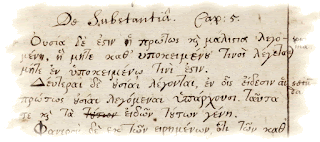 De Substantiâ. Cap: 5.
Ουσία δέ ἐστιν ἡ πρώτως κὴ μάλιστα λεγο-
μένη, ἡ μήτε καθ' ὑποκειμένου τινὸς λέγεται
μήτε ἐν ὑποκειμένῳ τινί ἐστιν.
Δεύτεραι δὲ οὐσίαι λέγονται, ἐν οἷς εἴδεσιν αἱ
πρώτως οὐσίαι λεγόμεναι ὑπάρχουσι. ταῦτα
τε κὴ τὰ τῶν εἰδῶν τούτων γένη.
Φανερὸν δὲ ἐκ τῶν εἰρημένων, ὅτι τῶν καθ'